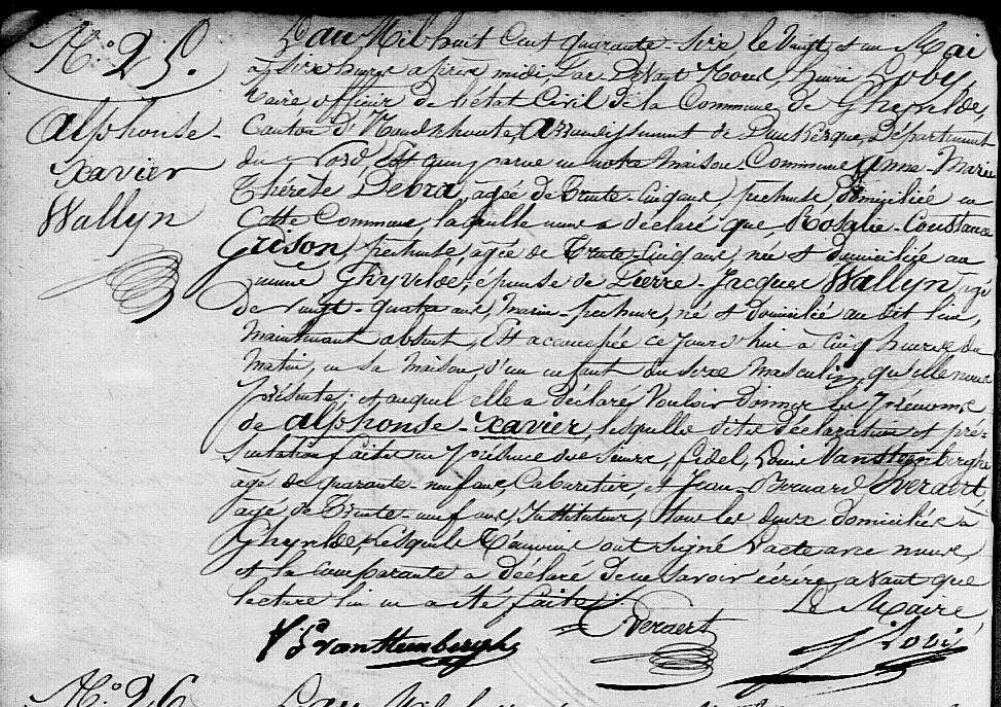 N.° 25.
Alphonse-
Xavier
Wallyn
L'an Mil huit Cent quarante-six, le Vingt et un Mai
à six heures après midi, Par Devant Nous, henri Looby,
Maire officier de l'état Civil de la Commune de Ghyvelde,
Canton d'Hondschoote, Arrondissement de Dunkerque, Département
du Nord, Est comparue en notre Maison-Commune, Anne-Marie
Thérèse Debra, agée de Trente-Cinq ans, pecheuse domiciliée en
Cette Commune, laquelle nous a déclaré que, Rosalie-Constance
Grison, pecheuse, agée de Trente-Cinq ans, née et domiciliée au
même Ghyvelde, épouse de Pierre-Jacques Wallyn, agé
de vingt-quatre ans, Marin-pecheur, né et domicilié au dit lieu,
Maintenant absent, Est accouchée ce jourd'hui à Cinq heures du
Matin, en sa Maison d'un enfant du sexe Masculin, qu'elle nous
présente, et auquel elle a déclaré Vouloir donner les Prénoms
de Alphonse-Xavier, lesquelles dites déclaration et pré-
sentation faites en présence des sieurs, fidel, Louis Vanstemberghe
agé de quarante-neuf ans, Cabaretier, et Jean-Bernard, Everaert
agé de Trente-neuf ans, Instituteur, tous les deux domiciliés à
Ghyvelde, lesquels Témoins ont signé l'acte avec nous,
et la comparante a déclaré de ne savoir écrire, avant que
lecture lui en a été faite.
Le Maire,
Vanstemberghe
Everaert
N.° 26
L'an Mil